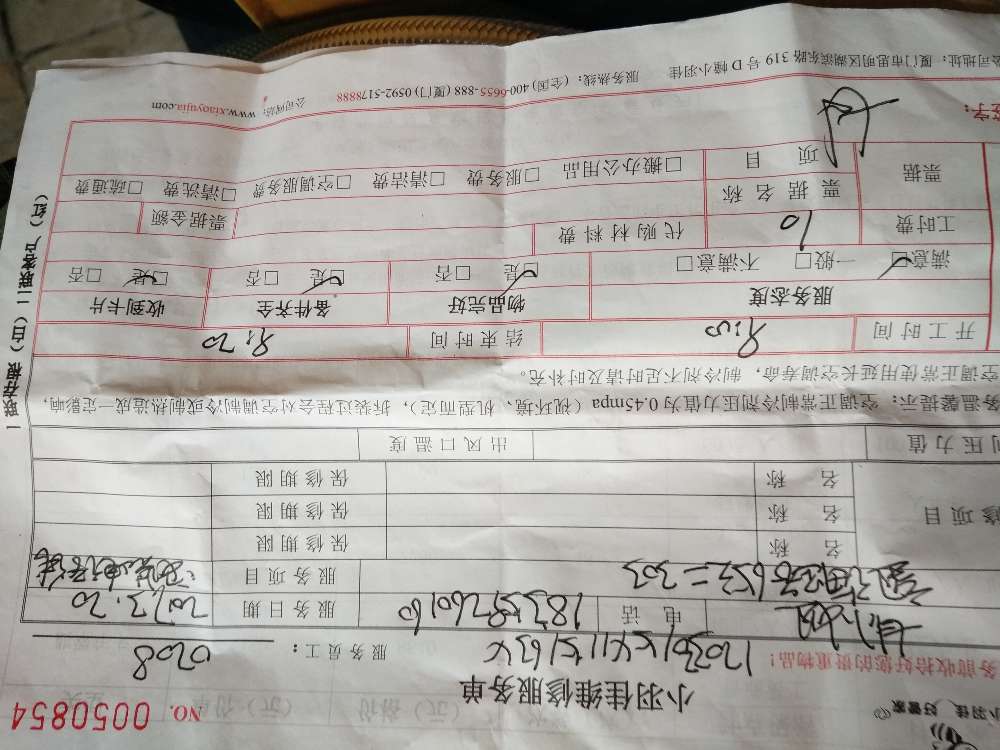 小羽佳 好管家
小羽佳维修服务单
NO. 0050854
务前收拾好您的贵重物品!
服务员工: 0208
电话 18359260160
服务日期
服务项目
名称 保修期限
名称 保修期限
名称 保修期限
修项目
剂压力值 出风口温度
务温馨提示: 空调正常制冷剂压力值为0.45mpa (视环境、机型而定), 拆装过程会对空调制冷或制热造成一定影响,
空调正常使用延长空调寿命, 制冷剂不足时请及时补充。
开工时间 8:00 结束时间 8:20
服务态度 物品完好 备件齐全 收到卡片
满意☑ 一般□ 不满意□ ☑是 □否 ☑是 □否 ☑是 □否
工时费 10 代购材料费
票据 票据名称 票据金额
项目 □搬办公用品 □服务费 □清洁费 □空调服务费 □清洗费 □疏通费
签字:
公司地址: 厦门市思明区湖滨东路319号D幢小羽佳 服务热线: (全国) 400-0655-888 (厦门) 0592-5178888 公司网站: www.xiaoyujia.com
一联存根 (白) 二联客户 (红)